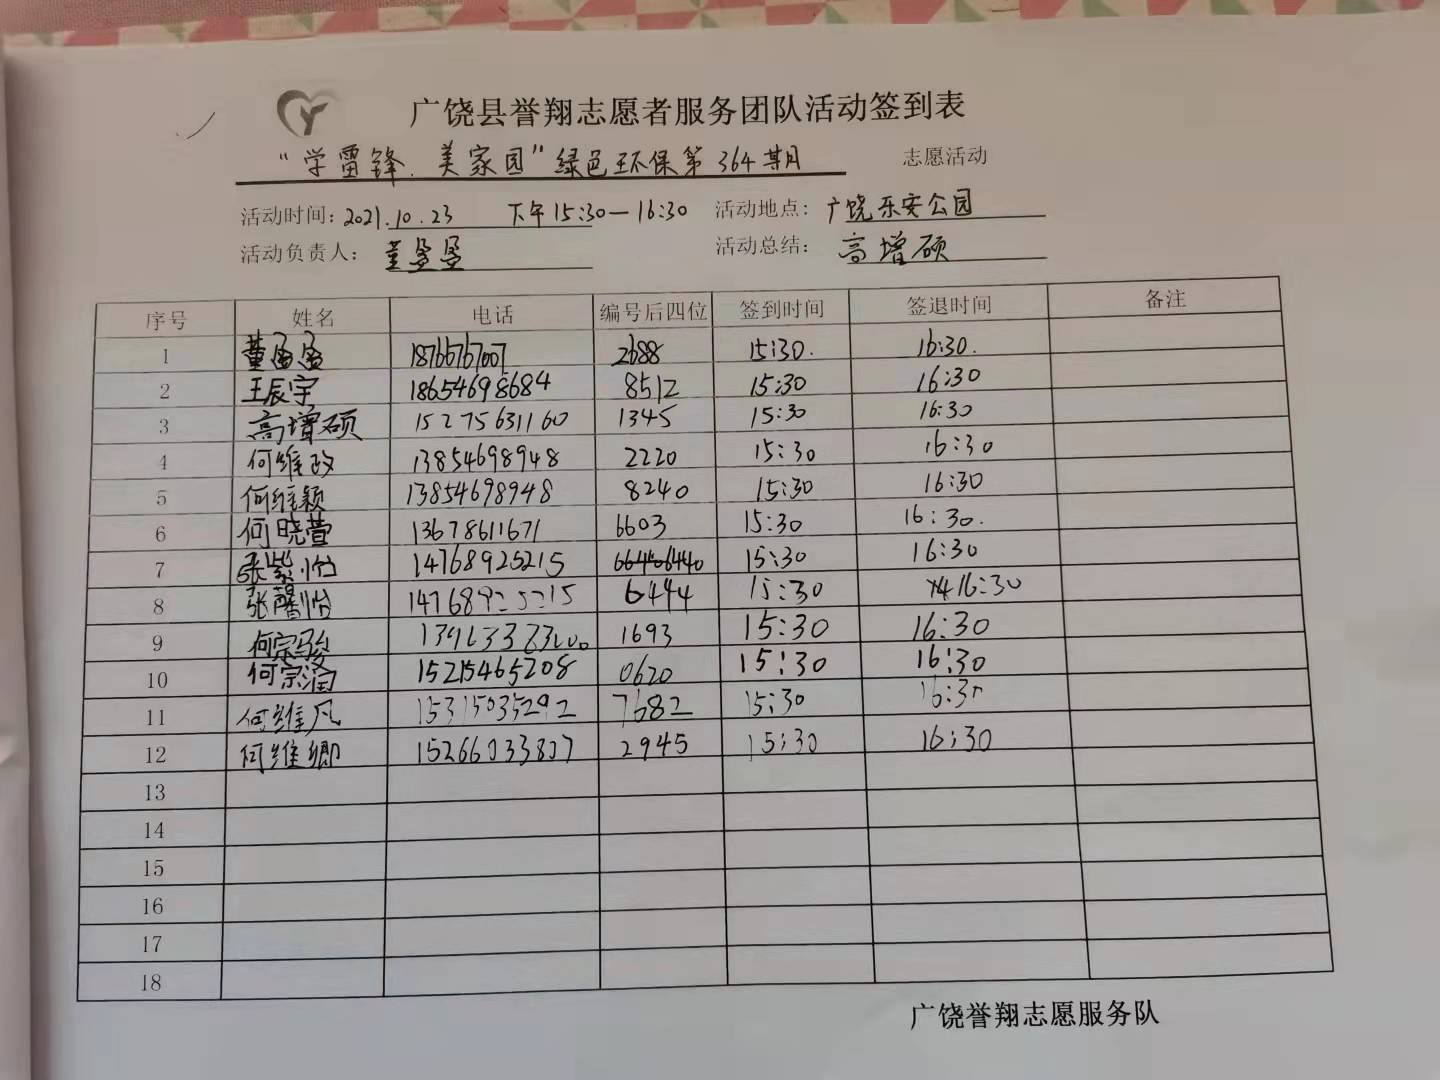 广饶县誉翔志愿者服务团队活动签到表
“学雷锋.美家园”绿色环保第364期 志愿活动
活动时间：2021.10.23 下午15:30—16:30 活动地点：广饶乐安公园
活动负责人：董盈盈 活动总结：高增硕
序号 姓名 电话 编号后四位 签到时间 签退时间 备注
1 董盈盈 18766767007 2688 15:30. 16:30.
2 王辰宇 18654698684 8512 15:30 16:30
3 高增硕 15275631160 1345 15:30 16:30
4 何维政 13854698948 2220 15:30 16:30
5 何维颖 13854698948 8240 15:30 16:30
6 何晓萱 13678611671 6603 15:30 16:30.
7 张紫怡 14768925215 15:30 16:30
8 张馨怡 14768925215 6444 15:30 16:30
9 何宗骏 1693 15:30 16:30
10 何宗润 15215465208 0620 15:30 16:30
11 何维凡 15315035292 7682 15:30 16:30
12 何维卿 15266033807 2945 15:30 16:30
13
14
15
16
17
18
广饶誉翔志愿服务队